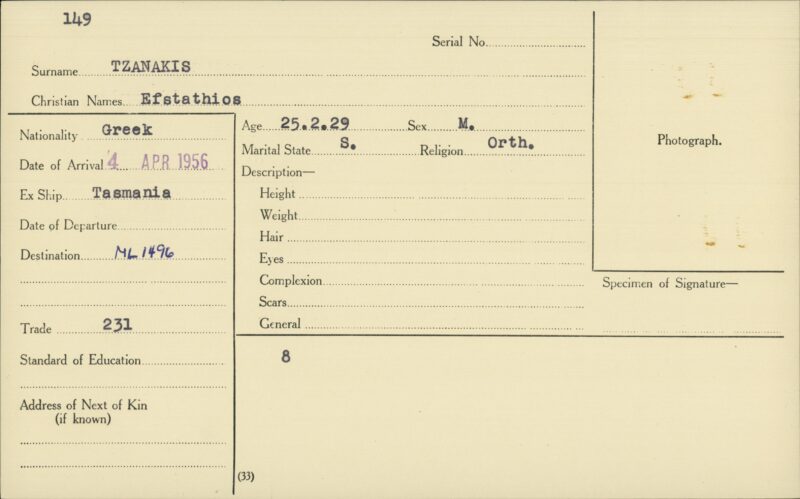 149
Serial No.
Surname TZANAKIS
Christian Names Efstathios
Nationality Greek
Date of Arrival 4 APR 1956
Ex Ship Tasmania
Date of Departure
Destination ML 1496
Trade 231
Standard of Education
Address of Next of Kin
(if known)
Age 25.2.29 Sex M.
Marital State S. Religion Orth.
Description—
Height
Weight
Hair
Eyes
Complexion
Scars
General
8
(33)
Photograph.
Specimen of Signature—